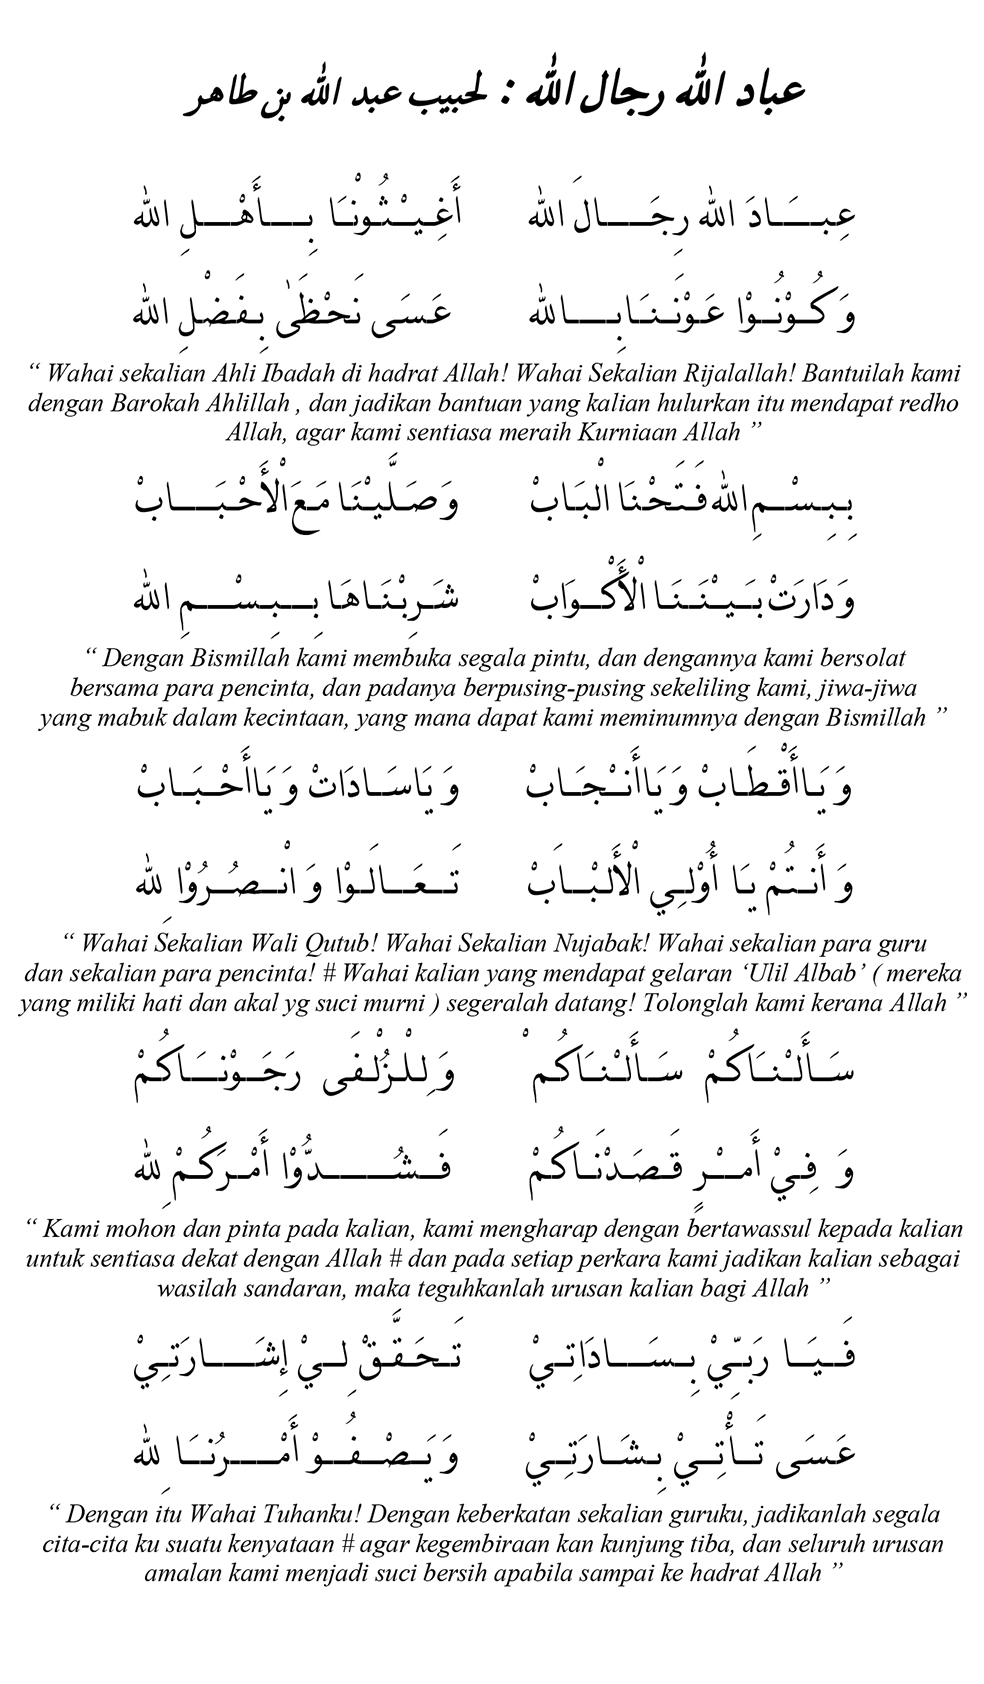 عباد الله رجال الله : لحبيب عبد الله بن طاهر
عِبَادَ الله رِجَالَ الله أَغِيْثُوْنَا بِأَهْلِ الله
وَكُوْنُوْا عَوْنَنَا بِالله عَسَى نَحْظَىٰ بِفَضْلِ الله
“ Wahai sekalian Ahli Ibadah di hadrat Allah! Wahai Sekalian Rijalallah! Bantuilah kami
dengan Barokah Ahlillah , dan jadikan bantuan yang kalian hulurkan itu mendapat redho
Allah, agar kami sentiasa meraih Kurniaan Allah ”
بِبِسْمِ الله فَتَحْنَا الْبَابْ وَصَلَّيْنَا مَعَ الْأَحْبَابْ
وَدَارَتْ بَيْنَنَا الْأَكْوَابْ شَرِبْنَاهَا بِبِسْمِ الله
“ Dengan Bismillah kami membuka segala pintu, dan dengannya kami bersolat
bersama para pencinta, dan padanya berpusing-pusing sekeliling kami, jiwa-jiwa
yang mabuk dalam kecintaan, yang mana dapat kami meminumnya dengan Bismillah ”
وَيَا أَقْطَابْ وَيَا أَنْجَابْ وَيَا سَادَاتْ وَيَا أَحْبَابْ
وَأَنْتُمْ يَا أُوْلِي الْأَلْبَابْ تَعَالَوْا وَانْصُرُوْا لِله
“ Wahai Sekalian Wali Qutub! Wahai Sekalian Nujabak! Wahai sekalian para guru
dan sekalian para pencinta! # Wahai kalian yang mendapat gelaran ‘Ulil Albab’ ( mereka
yang miliki hati dan akal yg suci murni ) segeralah datang! Tolonglah kami kerana Allah ”
سَأَلْنَاكُمْ سَأَلْنَاكُمْ وَلِلْزُلْفَى رَجَوْنَاكُمْ
وَفِيْ أَمْرٍ قَصَدْنَاكُمْ فَشُدُّوْا أَمْرَكُمْ لِله
“ Kami mohon dan pinta pada kalian, kami mengharap dengan bertawassul kepada kalian
untuk sentiasa dekat dengan Allah # dan pada setiap perkara kami jadikan kalian sebagai
wasilah sandaran, maka teguhkanlah urusan kalian bagi Allah ”
فَيَا رَبِّيْ بِسَادَاتِيْ تَحَقَّقْ لِيْ إِشَارَتِيْ
عَسَى تَأْتِيْ بِشَارَتِيْ وَيَصْفُوْ أَمْرُنَا لِله
“ Dengan itu Wahai Tuhanku! Dengan keberkatan sekalian guruku, jadikanlah segala
cita-cita ku suatu kenyataan # agar kegembiraan kan kunjung tiba, dan seluruh urusan
amalan kami menjadi suci bersih apabila sampai ke hadrat Allah ”